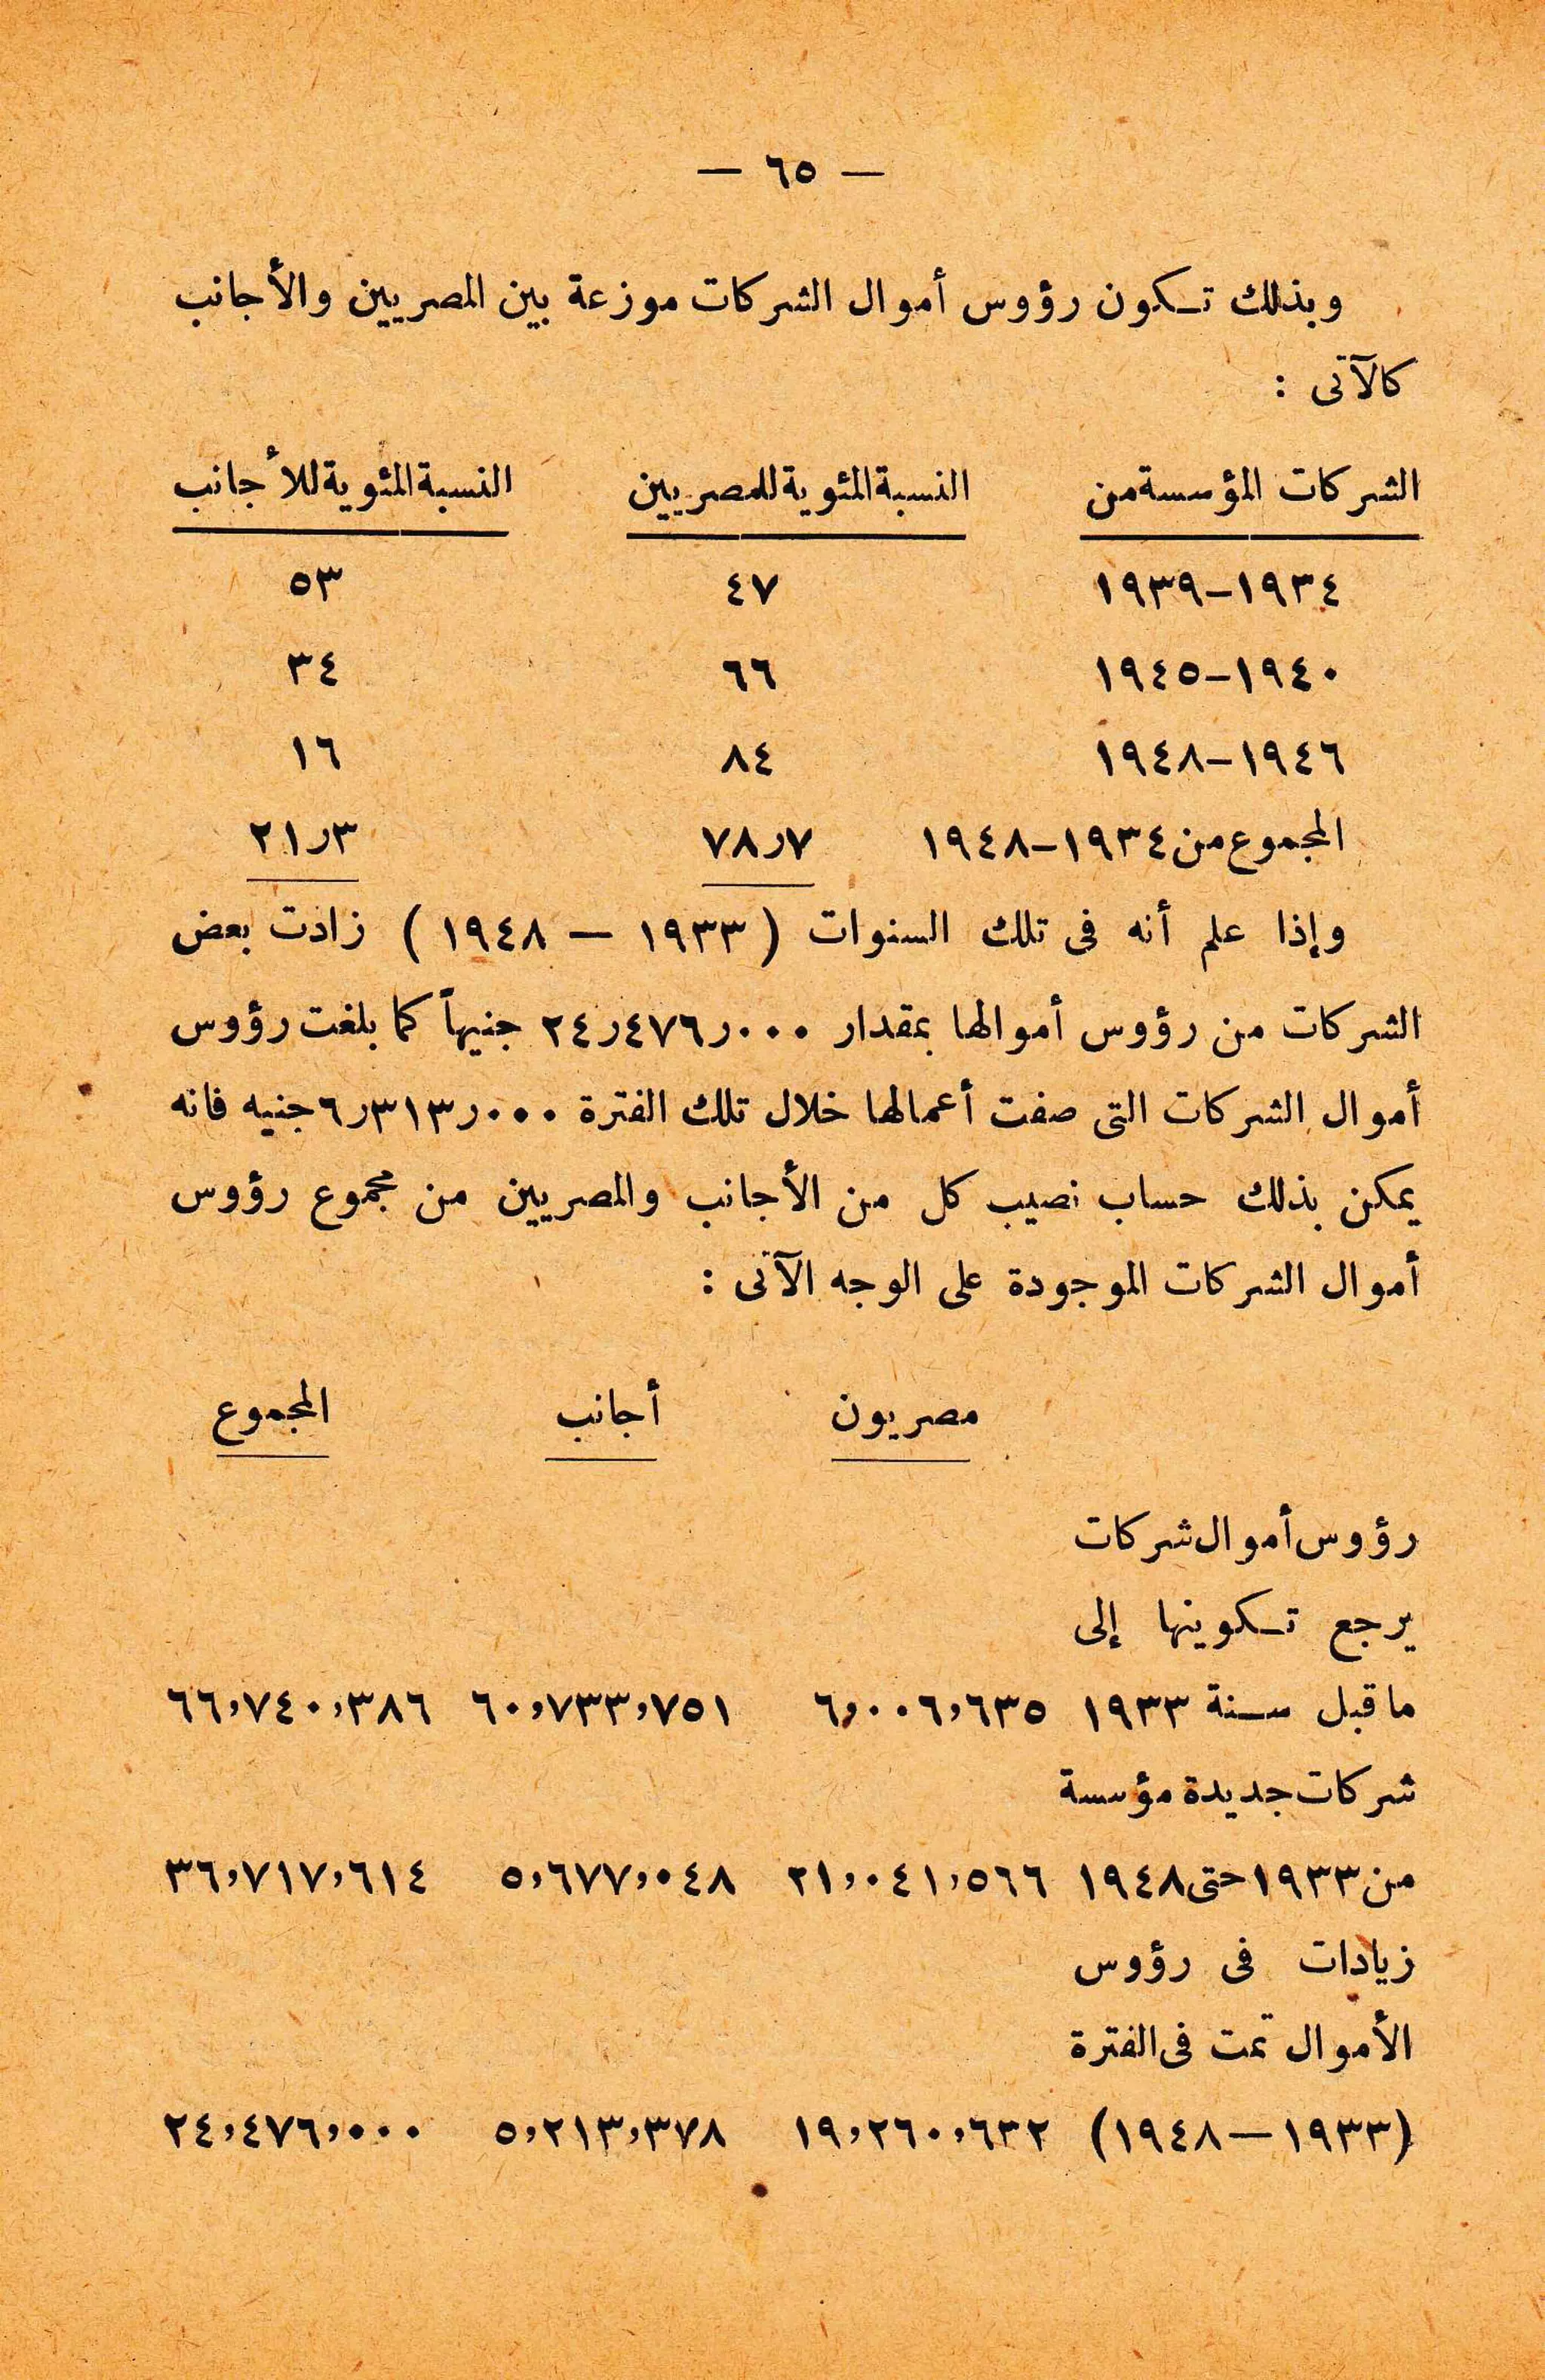 — ٦٥ —
وبذلك تـكون رؤوس أموال الشركات موزعة بين المصريين والأجانب
كالآتى :
الشركات المؤسسة من النسبة المئوية للمصريين النسبة المئوية للأجانب
١٩٣٤–١٩٣٩ ٤٧ ٥٣
١٩٤٠–١٩٤٥ ٦٦ ٣٤
١٩٤٦–١٩٤٨ ٨٤ ١٦
المجموع من ١٩٣٤–١٩٤٨ ٧٨ر٧ ٢١ر٣
وإذا علم أنه فى تلك السنوات ( ١٩٣٣ — ١٩٤٨ ) زادت بعض
الشركات من رؤوس أموالها بمقدار ٢٤ر٤٧٦ر٠٠٠ جنيهاً كما بلغت رؤوس
أموال الشركات التى صفت أعمالها خلال تلك الفترة ٦ر٣١٣ر٠٠٠ جنيه فانه
يمكن بذلك حساب نصيب كل من الأجانب والمصريين من مجموع رؤوس
أموال الشركات الموجودة على الوجه الآتى :
مصريون أجانب المجموع
رؤوس أموال شركات
يرجع تـكوينها إلى
ما قبل سـنة ١٩٣٣ ٦,٠٠٦,٦٣٥ ٦٠,٧٣٣,٧٥١ ٦٦,٧٤٠,٣٨٦
شركات جديدة مؤسسة
من ١٩٣٣ حتى ١٩٤٨ ٢١,٠٤١,٥٦٦ ٥,٦٧٧,٠٤٨ ٣٦,٧١٧,٦١٤
زيادات فى رؤوس
الأموال تمت فى الفترة
(١٩٣٣ — ١٩٤٨) ١٩,٢٦٠,٦٣٢ ٥,٢١٣,٣٧٨ ٢٤,٤٧٦,٠٠٠